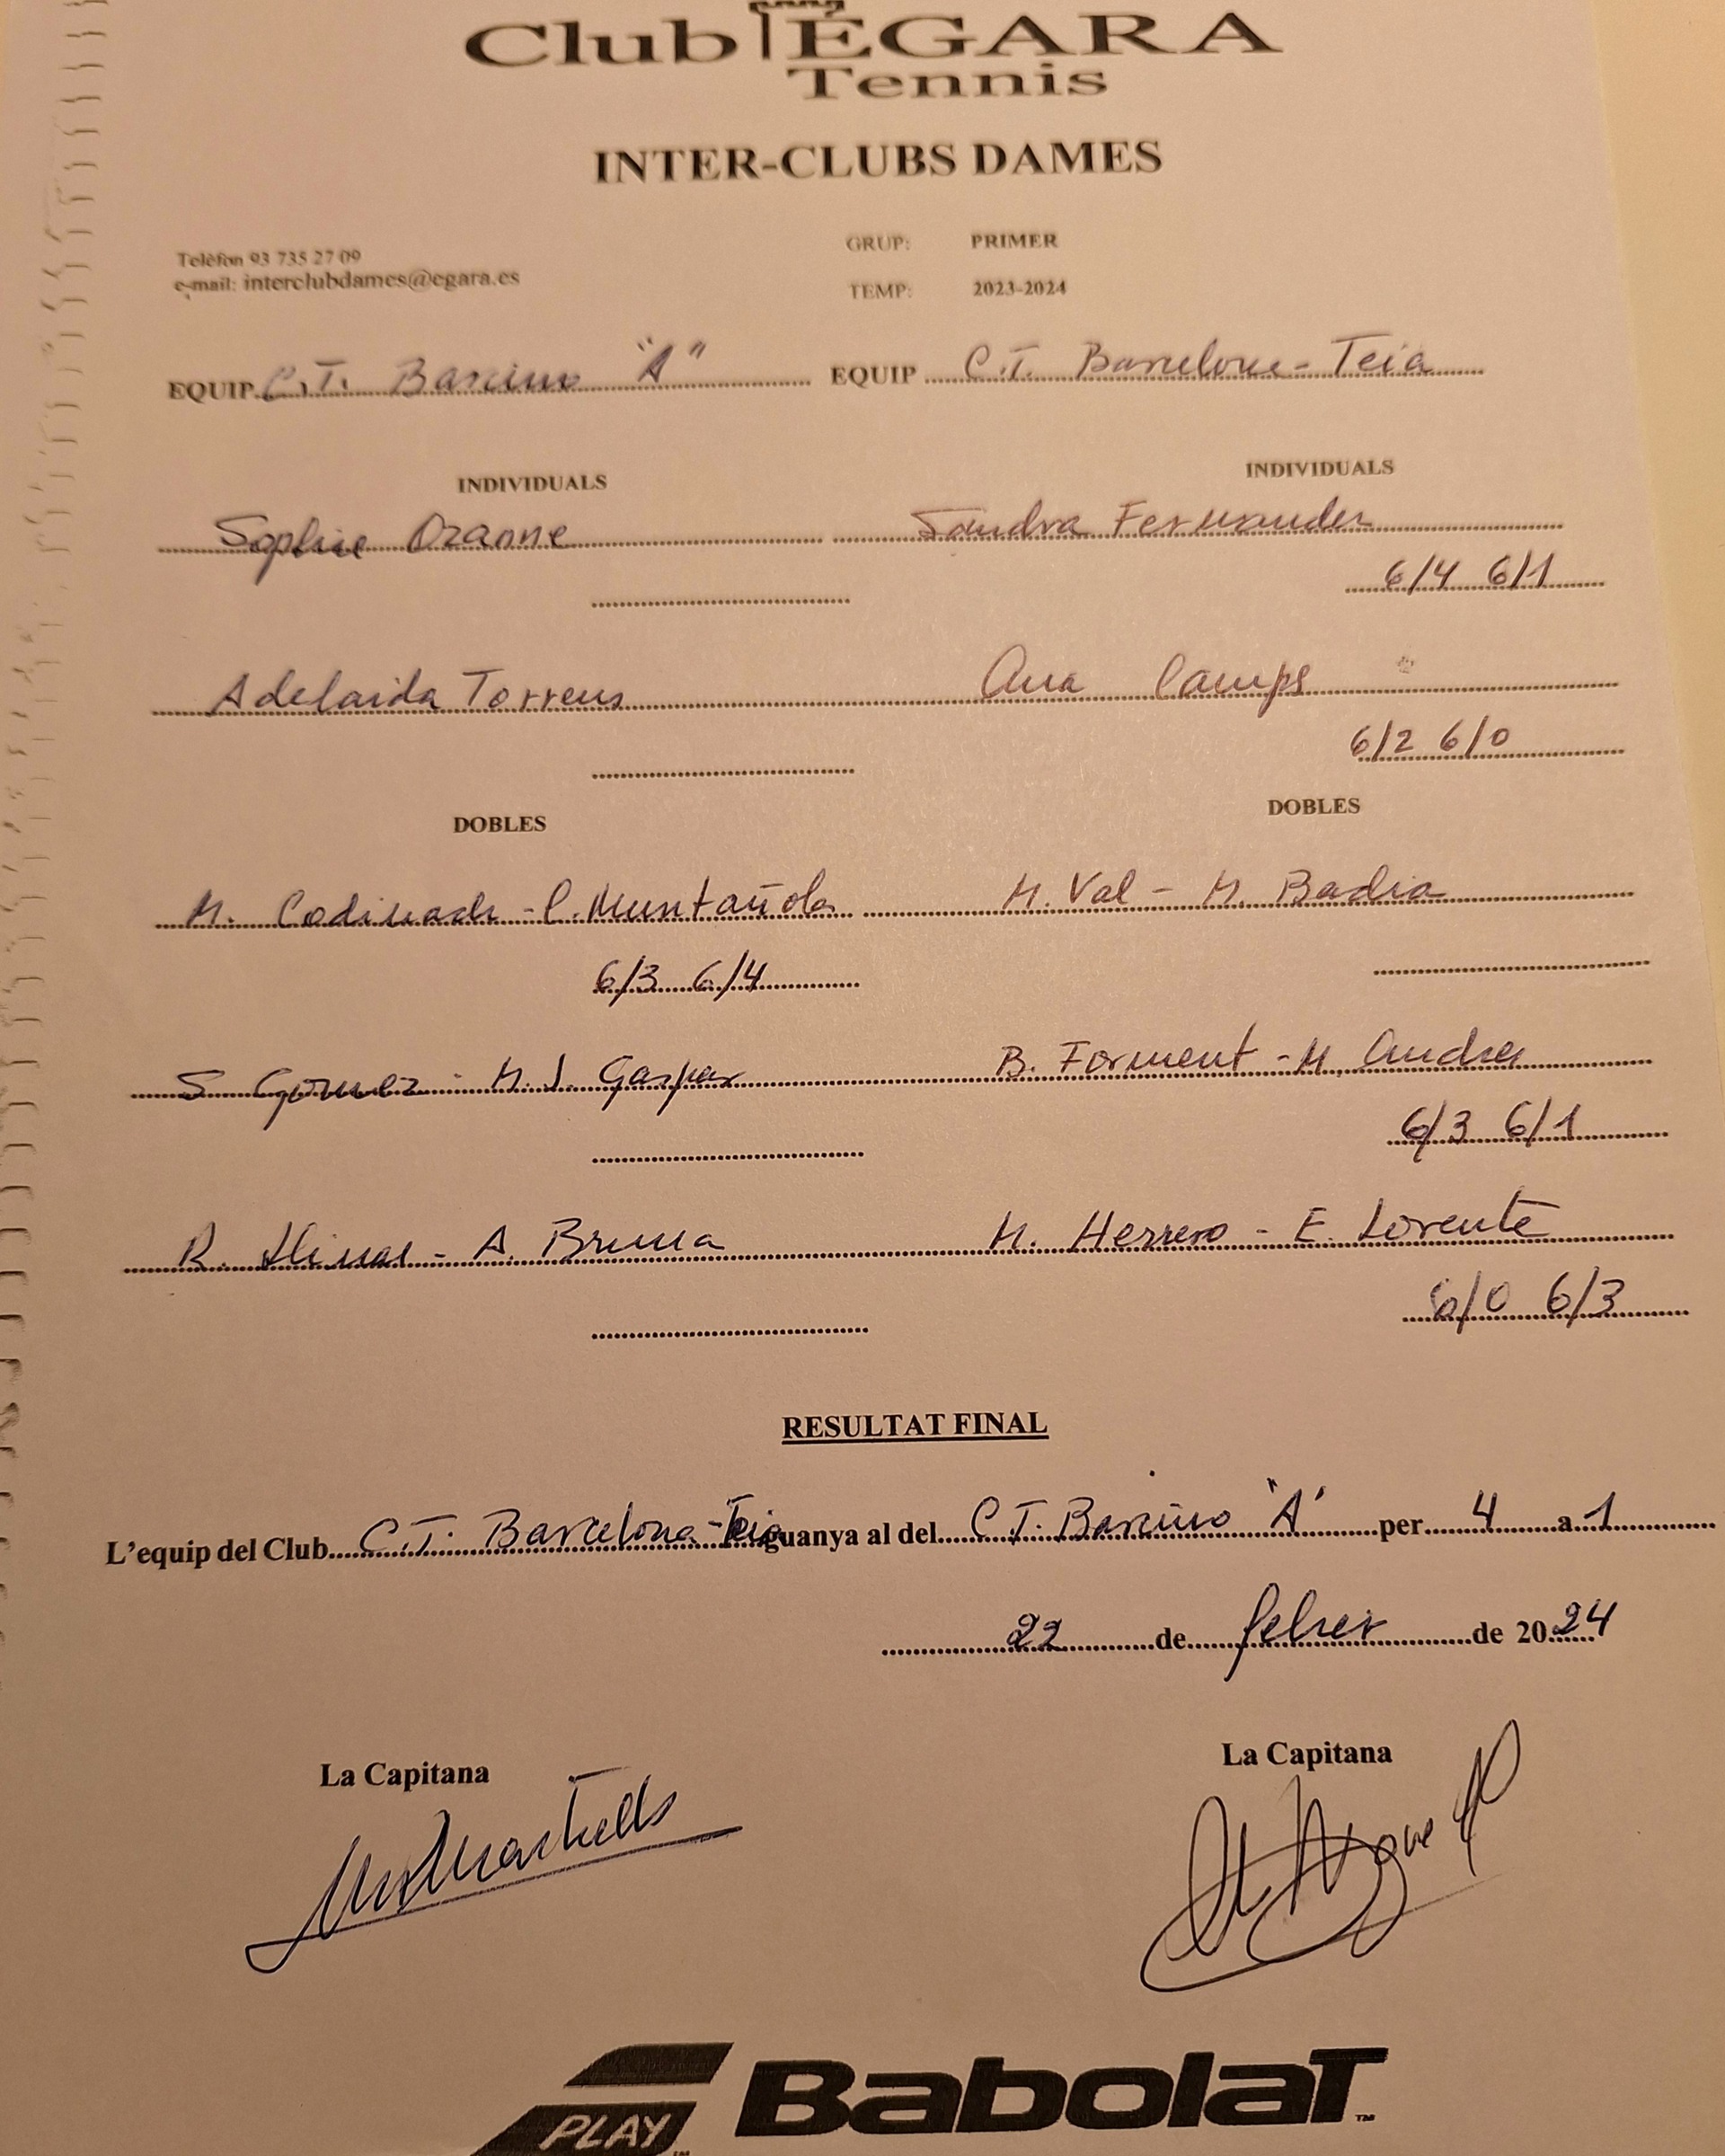 Club ÉGARA
Tennis
INTER-CLUBS DAMES
Telèfon 93 735 27 09
e-mail: interclubdames@egara.es
GRUP: PRIMER
TEMP: 2023-2024
EQUIP C.T. Barcino "A" EQUIP C.T. Barcelona-Teia
INDIVIDUALS INDIVIDUALS
Sophie Ozanne Sandra Fernandez
6/4 6/1
Adelaida Torrens Ana Camps
6/2 6/0
DOBLES DOBLES
M. Codinach - C. Muntañola M. Val - M. Badia
6/3 6/4
S. Gomez - M.J. Gaspar B. Forment - M. Andres
6/3 6/1
R. Llinas - A. Bruna M. Herrero - E. Lorente
6/0 6/3
RESULTAT FINAL
L'equip del Club C.T. Barcelona-Teia guanya al del C.T. Barcino "A" per 4 a 1
22 de febrer de 2024
La Capitana La Capitana
PLAY Babolat